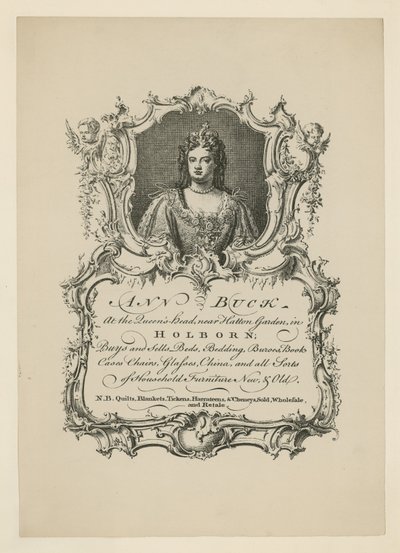 ANN BUCK
At the Queen's head, near Hatton Garden, in
HOLBORN;
Buys and Sells Beds, Bedding, Buroes, Book
Cases Chairs, Glasses, China, and all Sorts
of Household Furniture New, & Old.
N.B. Quilts, Blankets, Tickens, Harrateens, & Cheneys, Sold, Wholesale
and Retale.